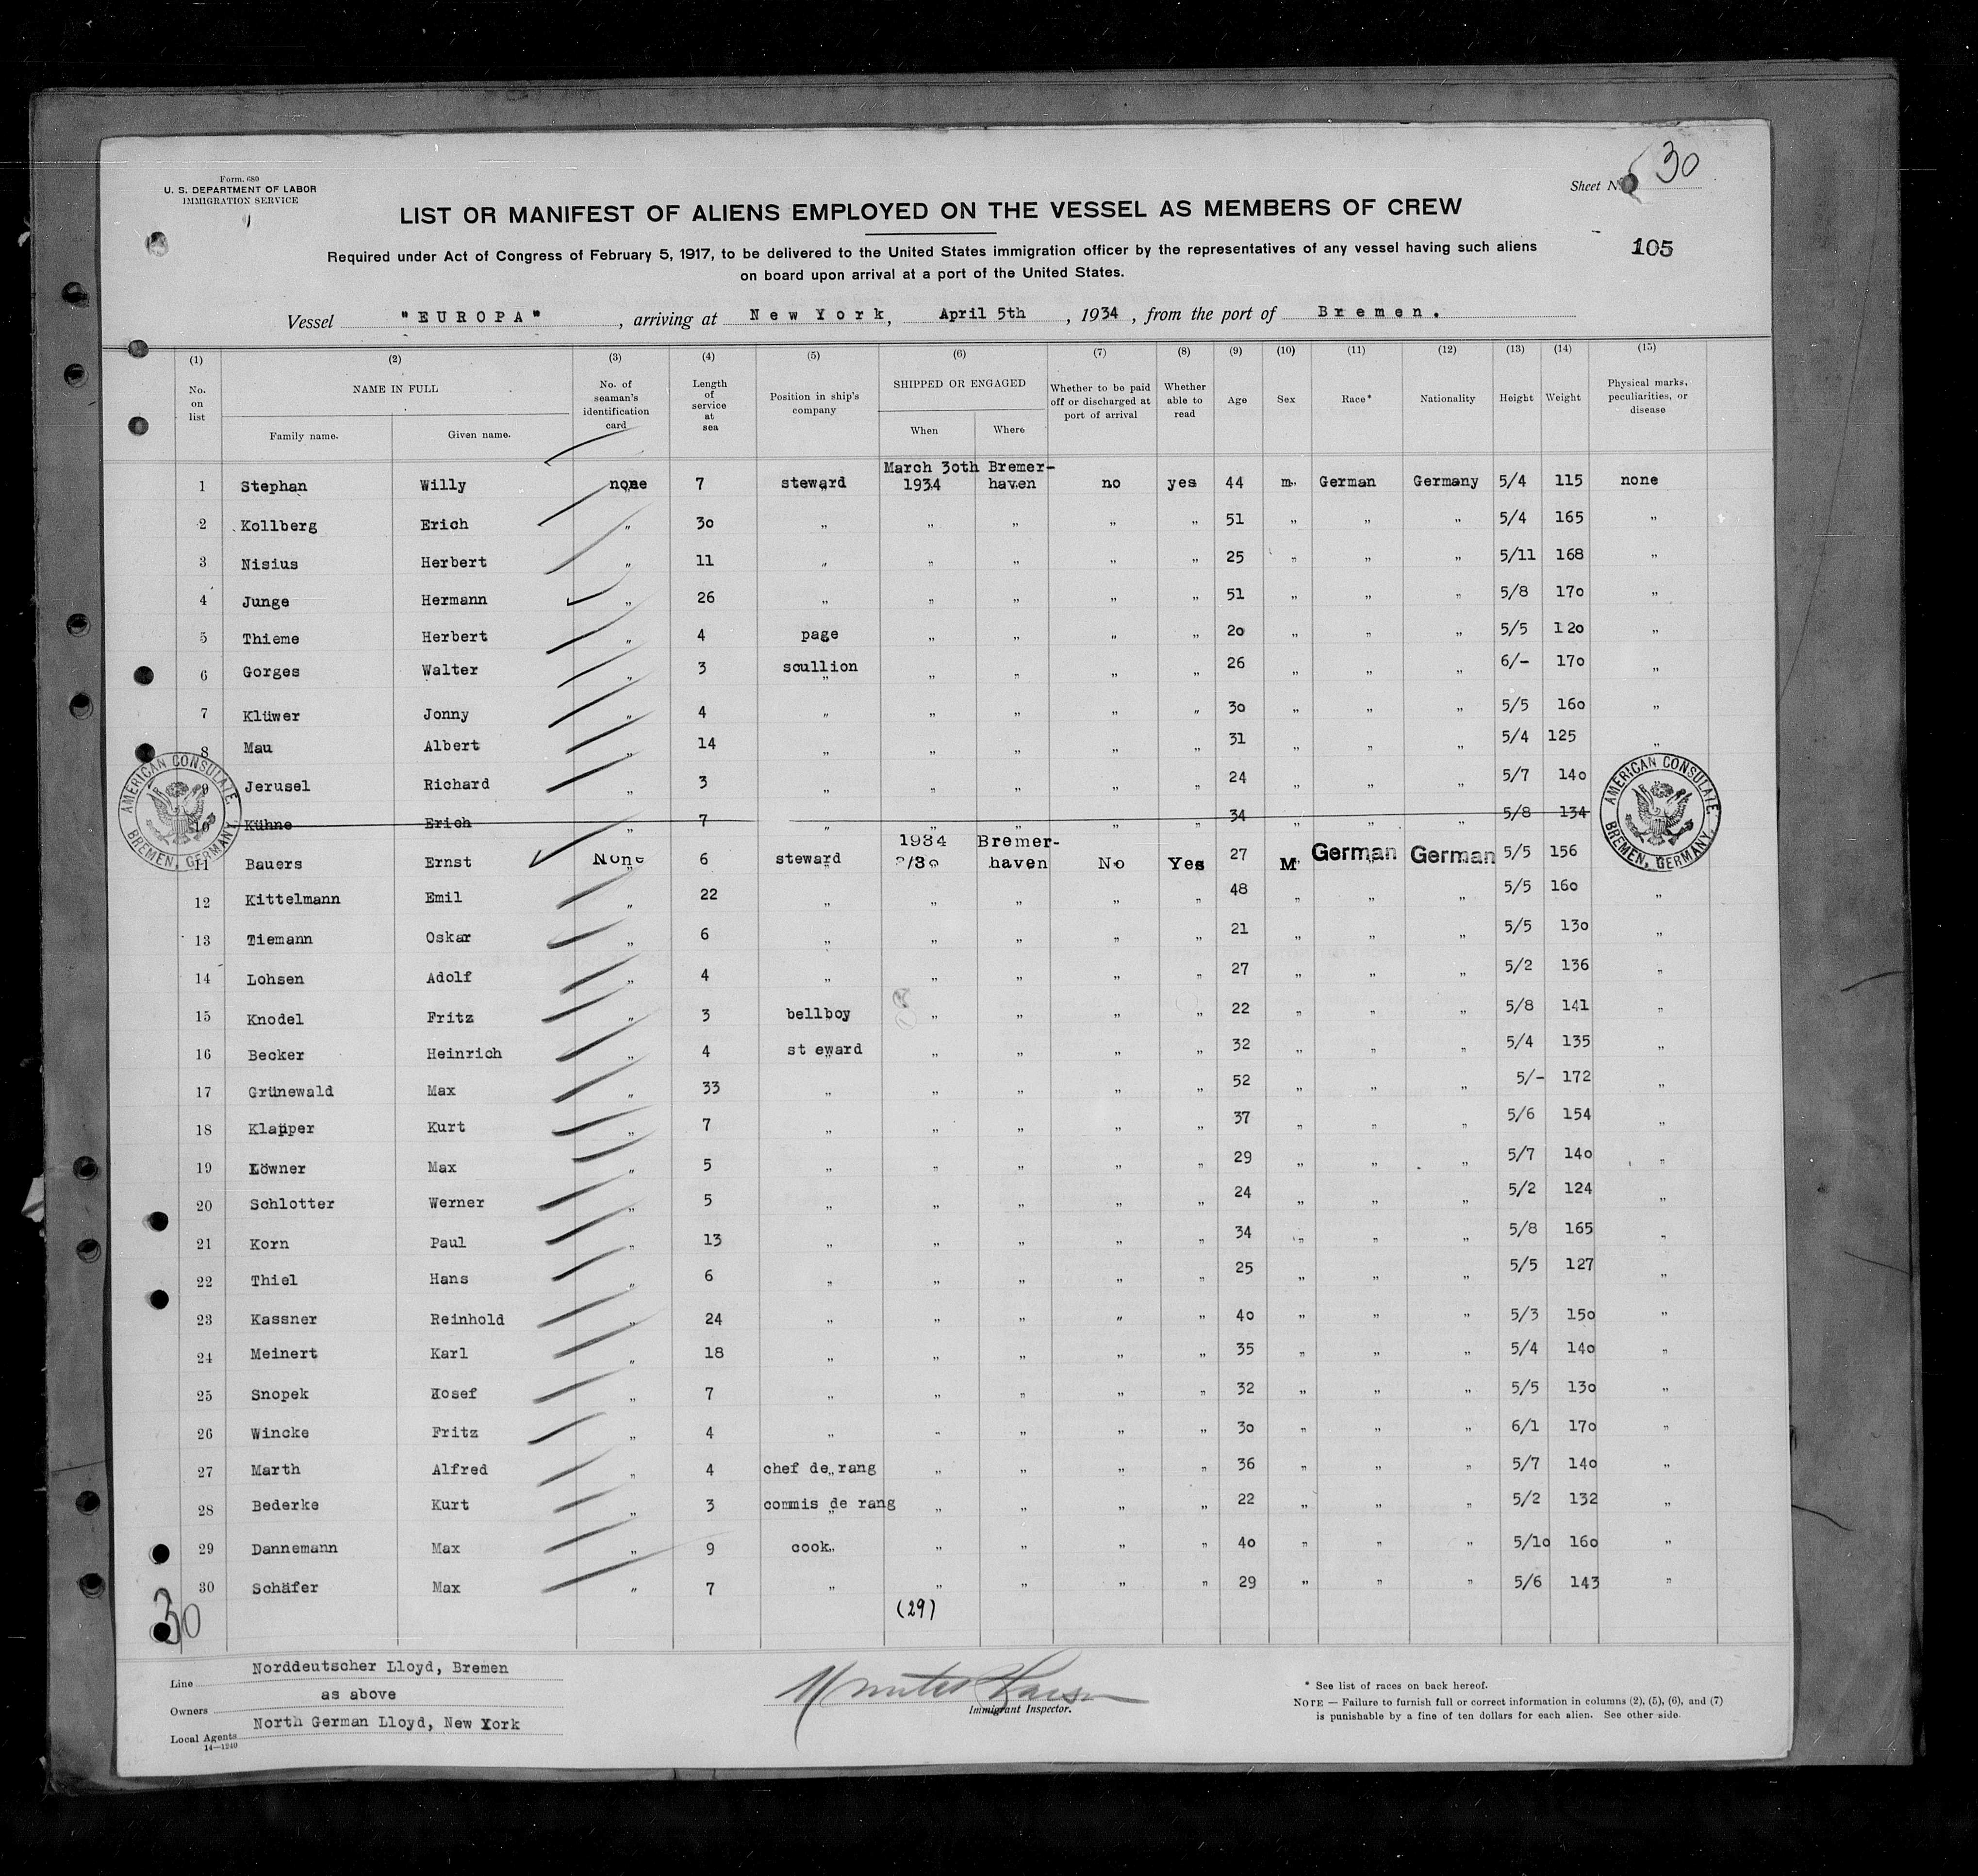 Form. 680
U. S. DEPARTMENT OF LABOR
IMMIGRATION SERVICE
Sheet No. 30
LIST OR MANIFEST OF ALIENS EMPLOYED ON THE VESSEL AS MEMBERS OF CREW
Required under Act of Congress of February 5, 1917, to be delivered to the United States immigration officer by the representatives of any vessel having such aliens
on board upon arrival at a port of the United States.
105
Vessel "EUROPA", arriving at New York, April 5th, 1934, from the port of Bremen.
(1) (2) (3) (4) (5) (6) (7) (8) (9) (10) (11) (12) (13) (14) (15)
No. on list NAME IN FULL Family name. Given name. No. of seaman's identification card Length of service at sea Position in ship's company SHIPPED OR ENGAGED When Where Whether to be paid off or discharged at port of arrival Whether able to read Age Sex Race* Nationality Height Weight Physical marks, peculiarities, or disease
1 Stephan Willy none 7 steward March 30th 1934 Bremer-haven no yes 44 m. German Germany 5/4 115 none
2 Kollberg Erich " 30 " " " " " 51 " " " 5/4 165 "
3 Nisius Herbert " 11 " " " " " 25 " " " 5/11 168 "
4 Junge Hermann " 26 " " " " " 51 " " " 5/8 170 "
5 Thieme Herbert " 4 page " " " " 20 " " " 5/5 120 "
6 Gorges Walter " 3 scullion " " " " 26 " " " 6/- 170 "
7 Klüwer Jonny " 4 " " " " " 30 " " " 5/5 160 "
8 Mau Albert " 14 " " " " " 31 " " " 5/4 125 "
9 Jerusel Richard " 3 " " " " " 24 " " " 5/7 140
10 Kühne Erich " 7 " " " " " 34 " " " 5/8 134
11 Bauers Ernst None 6 steward 1934 3/30 Bremer-haven No Yes 27 M German German 5/5 156
12 Kittelmann Emil " 22 " " " " " 48 " " " 5/5 160 "
13 Tiemann Oskar " 6 " " " " " 21 " " " 5/5 130 "
14 Lohsen Adolf " 4 " " " " " 27 " " " 5/2 136 "
15 Knodel Fritz " 3 bellboy " " " " 22 " " " 5/8 141 "
16 Becker Heinrich " 4 st eward " " " " 32 " " " 5/4 135 "
17 Grünewald Max " 33 " " " " " 52 " " " 5/- 172 "
18 Klapper Kurt " 7 " " " " " 37 " " " 5/6 154 "
19 Löwner Max " 5 " " " " " 29 " " " 5/7 140 "
20 Schlotter Werner " 5 " " " " " 24 " " " 5/2 124 "
21 Korn Paul " 13 " " " " " 34 " " " 5/8 165 "
22 Thiel Hans " 6 " " " " " 25 " " " 5/5 127 "
23 Kassner Reinhold " 24 " " " " " 40 " " " 5/3 150 "
24 Meinert Karl " 18 " " " " " 35 " " " 5/4 140 "
25 Snopek Josef " 7 " " " " " 32 " " " 5/5 130 "
26 Wincke Fritz " 4 " " " " " 30 " " " 6/1 170 "
27 Marth Alfred " 4 chef de rang " " " " 36 " " " 5/7 140 "
28 Bederke Kurt " 3 commis de rang " " " " 22 " " " 5/2 132 "
29 Dannemann Max " 9 cook " " " " 40 " " " 5/10 160 "
30 Schäfer Max " 7 " " " " " 29 " " " 5/6 143 "
AMERICAN CONSULATE BREMEN, GERMANY.
AMERICAN CONSULATE BREMEN, GERMANY.
30
(29)
Line Norddeutscher Lloyd, Bremen
Owners as above
Local Agents North German Lloyd, New York
14—1240
Immigrant Inspector.
* See list of races on back hereof.
NOTE — Failure to furnish full or correct information in columns (2), (5), (6), and (7)
is punishable by a fine of ten dollars for each alien. See other side.